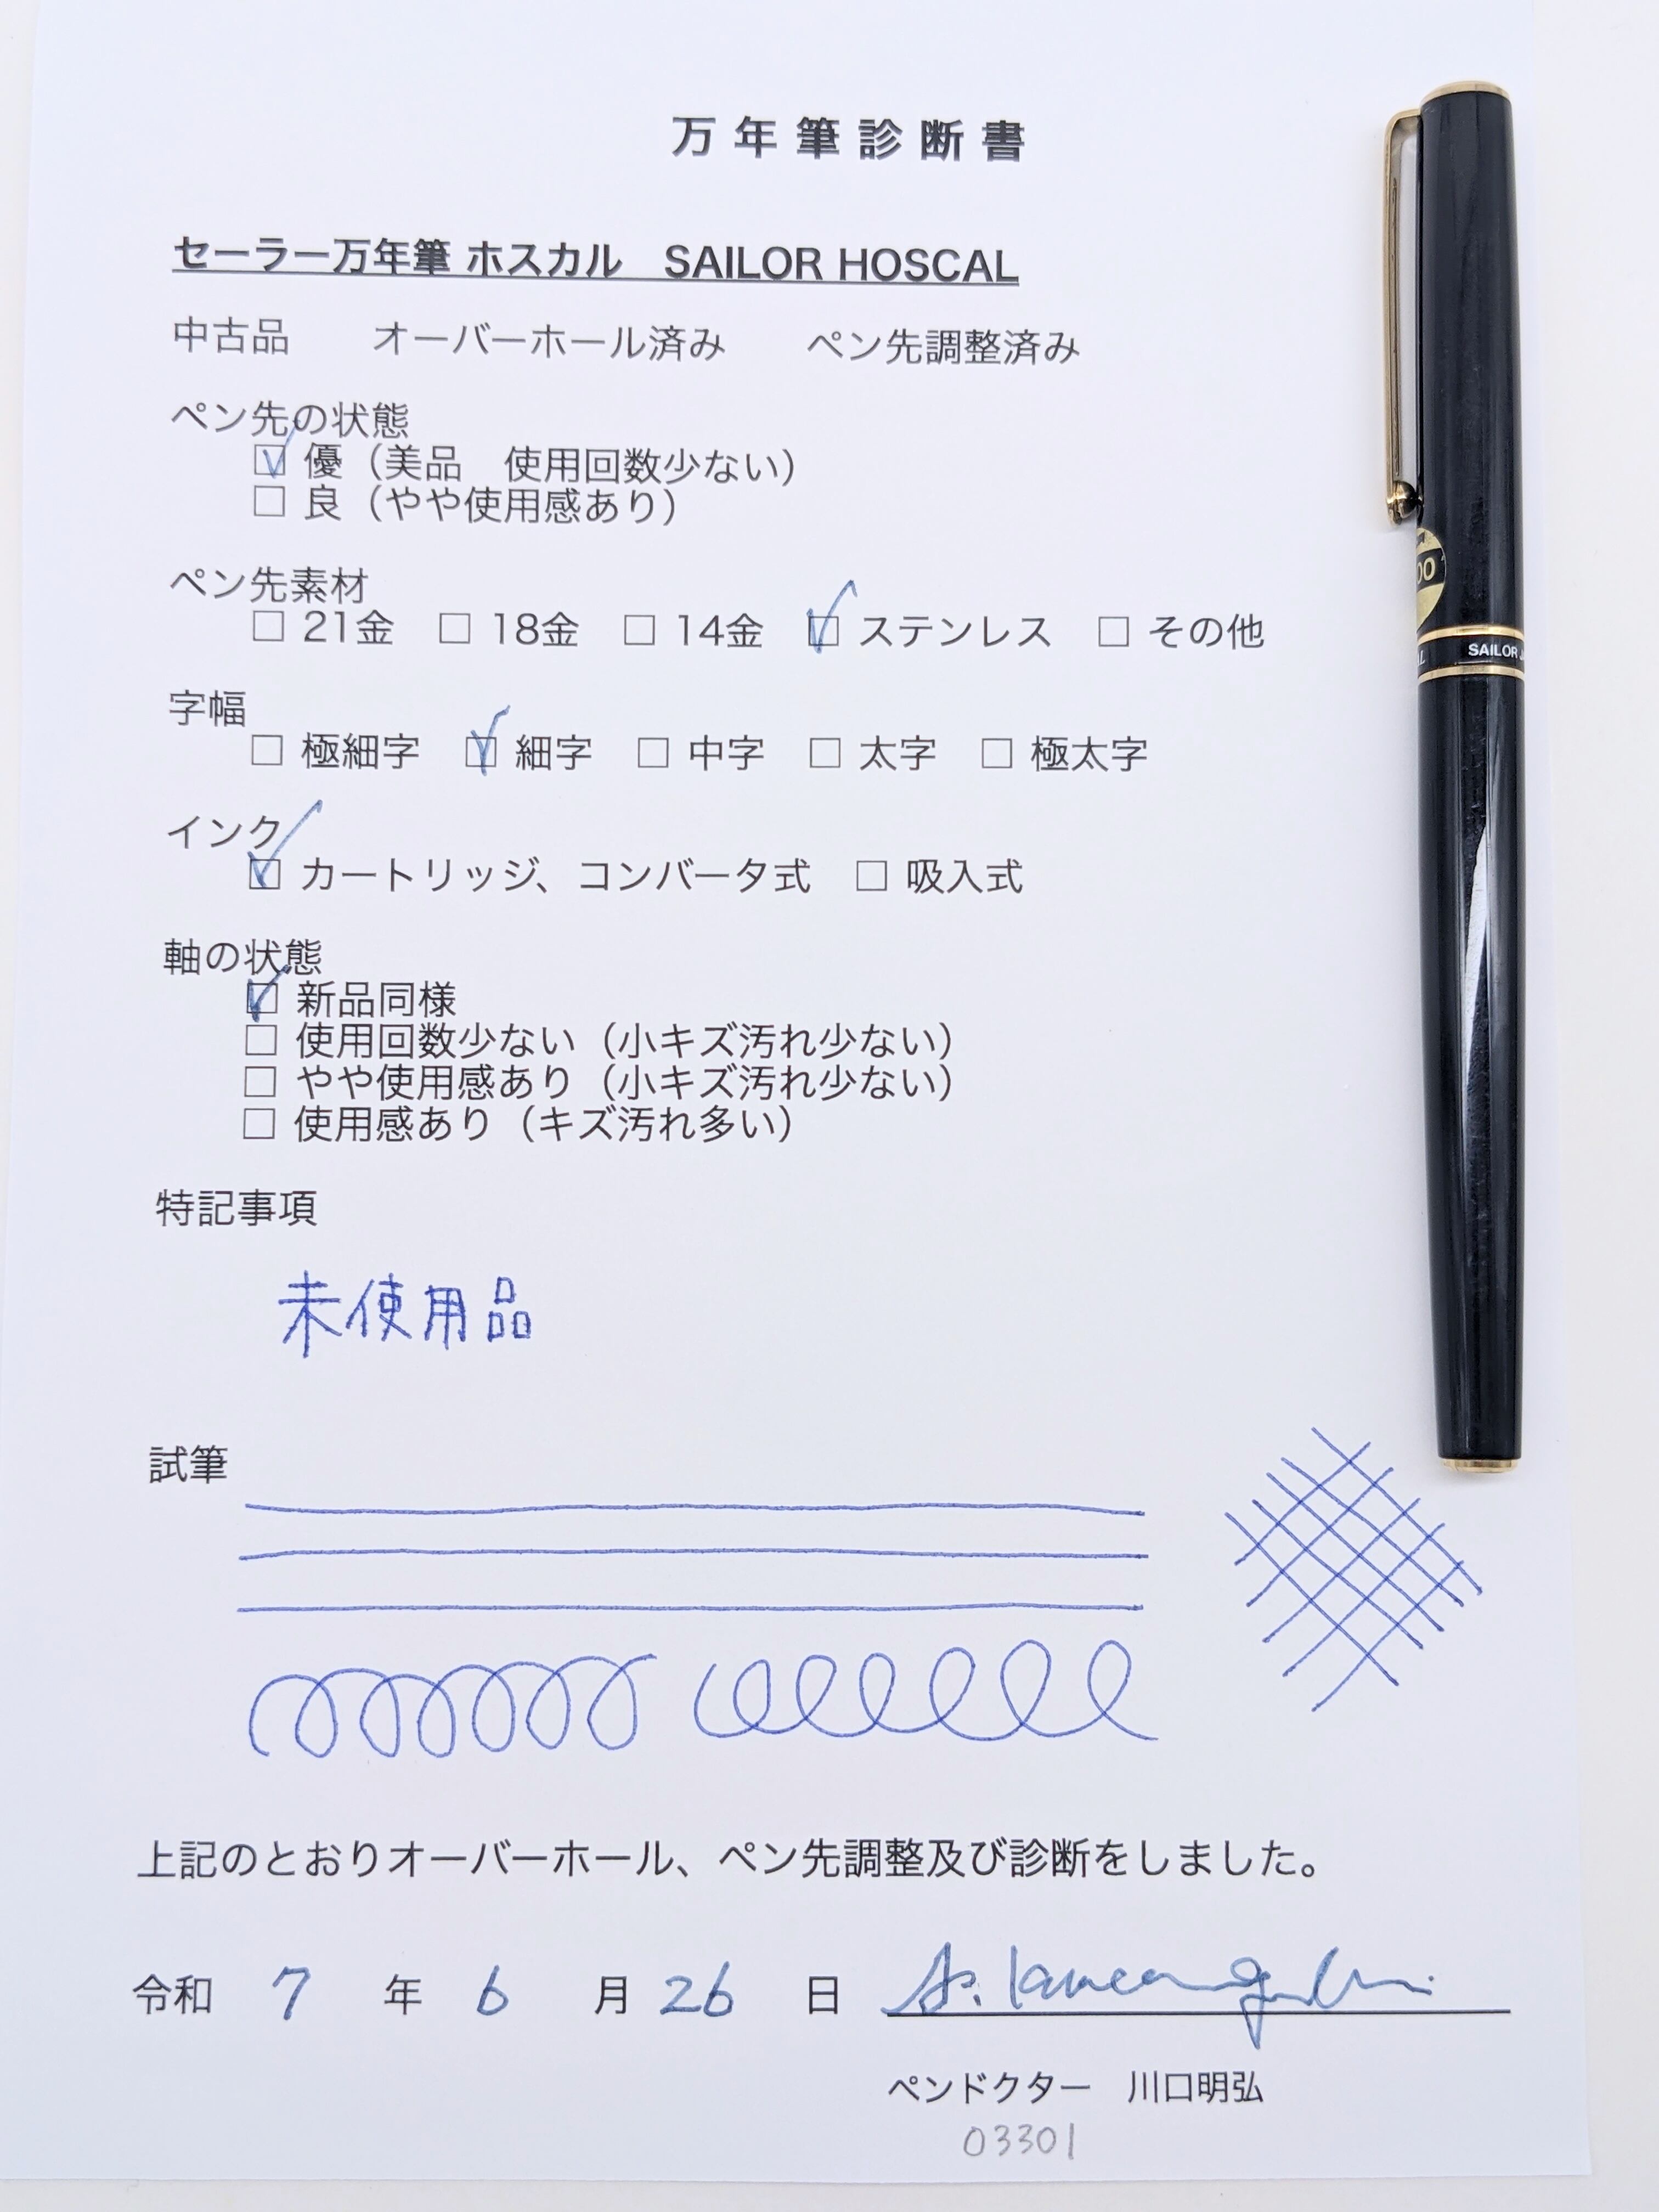 万年筆診断書
セーラー万年筆 ホスカル　SAILOR HOSCAL
中古品　　オーバーホール済み　　ペン先調整済み
ペン先の状態
☑ 優（美品　使用回数少ない）
□ 良（やや使用感あり）
ペン先素材
□ 21金　□ 18金　□ 14金　☑ ステンレス　□ その他
字幅
□ 極細字　☑ 細字　□ 中字　□ 太字　□ 極太字
インク
☑ カートリッジ、コンバータ式　□ 吸入式
軸の状態
☑ 新品同様
□ 使用回数少ない（小キズ汚れ少ない）
□ やや使用感あり（小キズ汚れ少ない）
□ 使用感あり（キズ汚れ多い）
特記事項
未使用品
試筆
上記のとおりオーバーホール、ペン先調整及び診断をしました。
令和 7 年 6 月 26 日
ペンドクター　川口明弘
03301
SAILOR